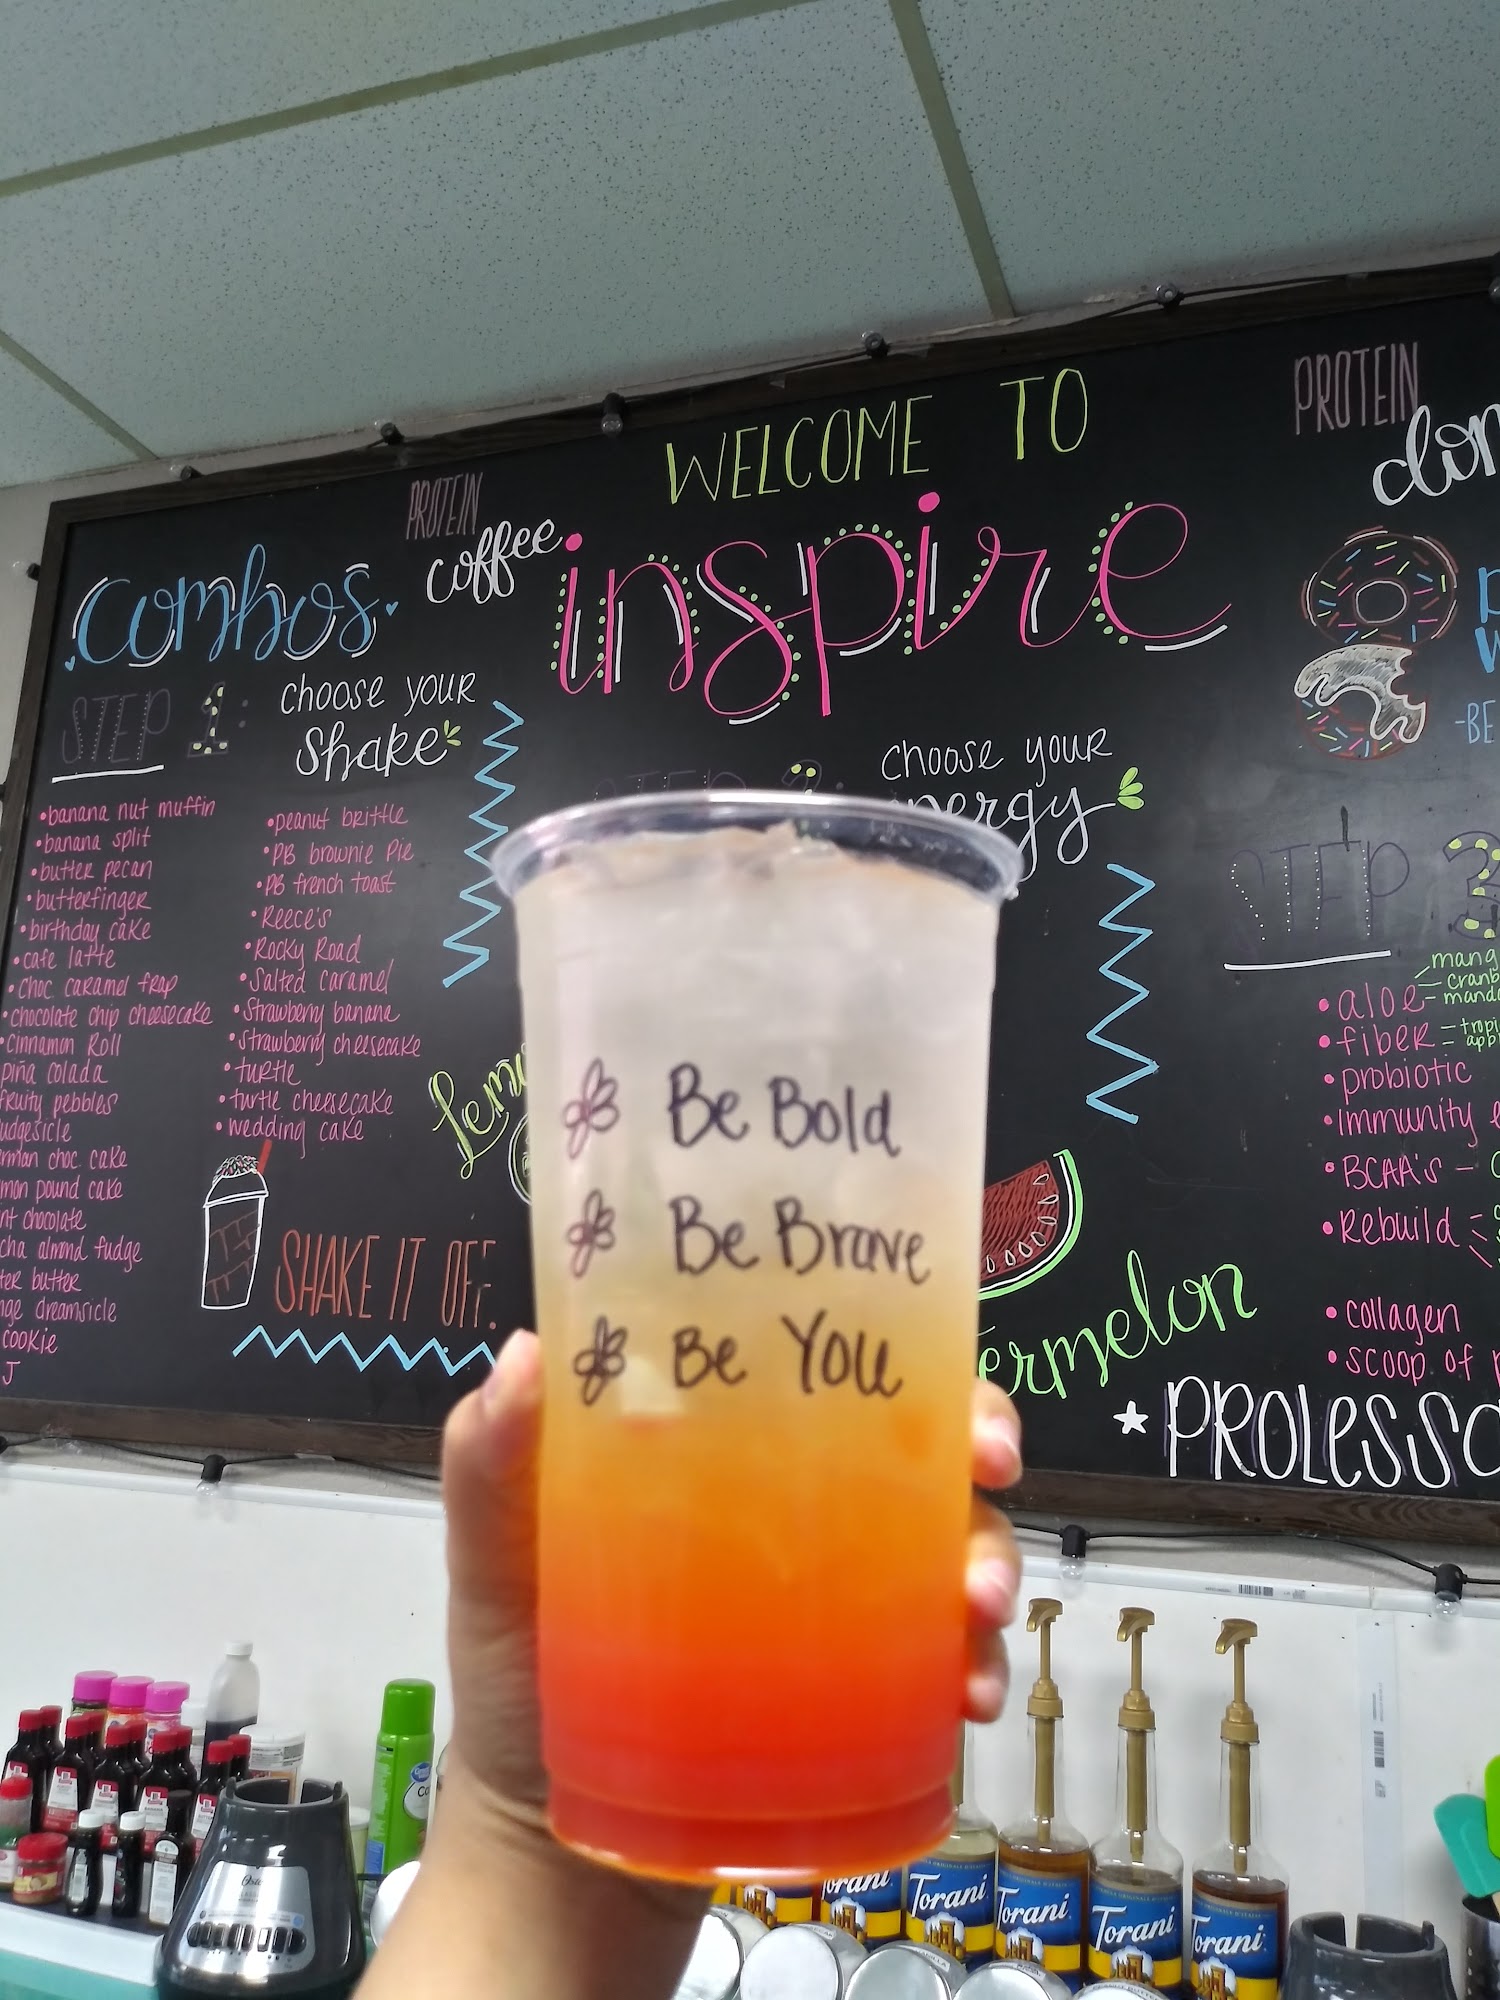 WELCOME TO
inspire
combos
PROTEIN
coffee
STEP 1:
choose your
shake
•banana nut muffin
•banana split
•butter pecan
•butterfinger
•birthday cake
•cafe latte
•choc. caramel frap
•chocolate chip cheesecake
cinnamon Roll
piña colada
fruity pebbles
choc. cake
pound cake
chocolate
almond fudge
butter
dreamsicle
cookie
J
•peanut brittle
•PB brownie Pie
•PB french toast
•Reece's
•Rocky Road
•Salted caramel
•Strawberry banana
•Strawberry cheesecake
•turtle
•turtle cheesecake
•wedding cake
SHAKE IT OFF.
choose your
Be Bold
Be Brave
Be You
PROTEIN
-BE
STEP 3
•aloe
•fiber
•probiotic
•immunity
•BCAA's -
•Rebuild
•collagen
•scoop of
Oster
Torani
Torani
Torani
Torani
Torani